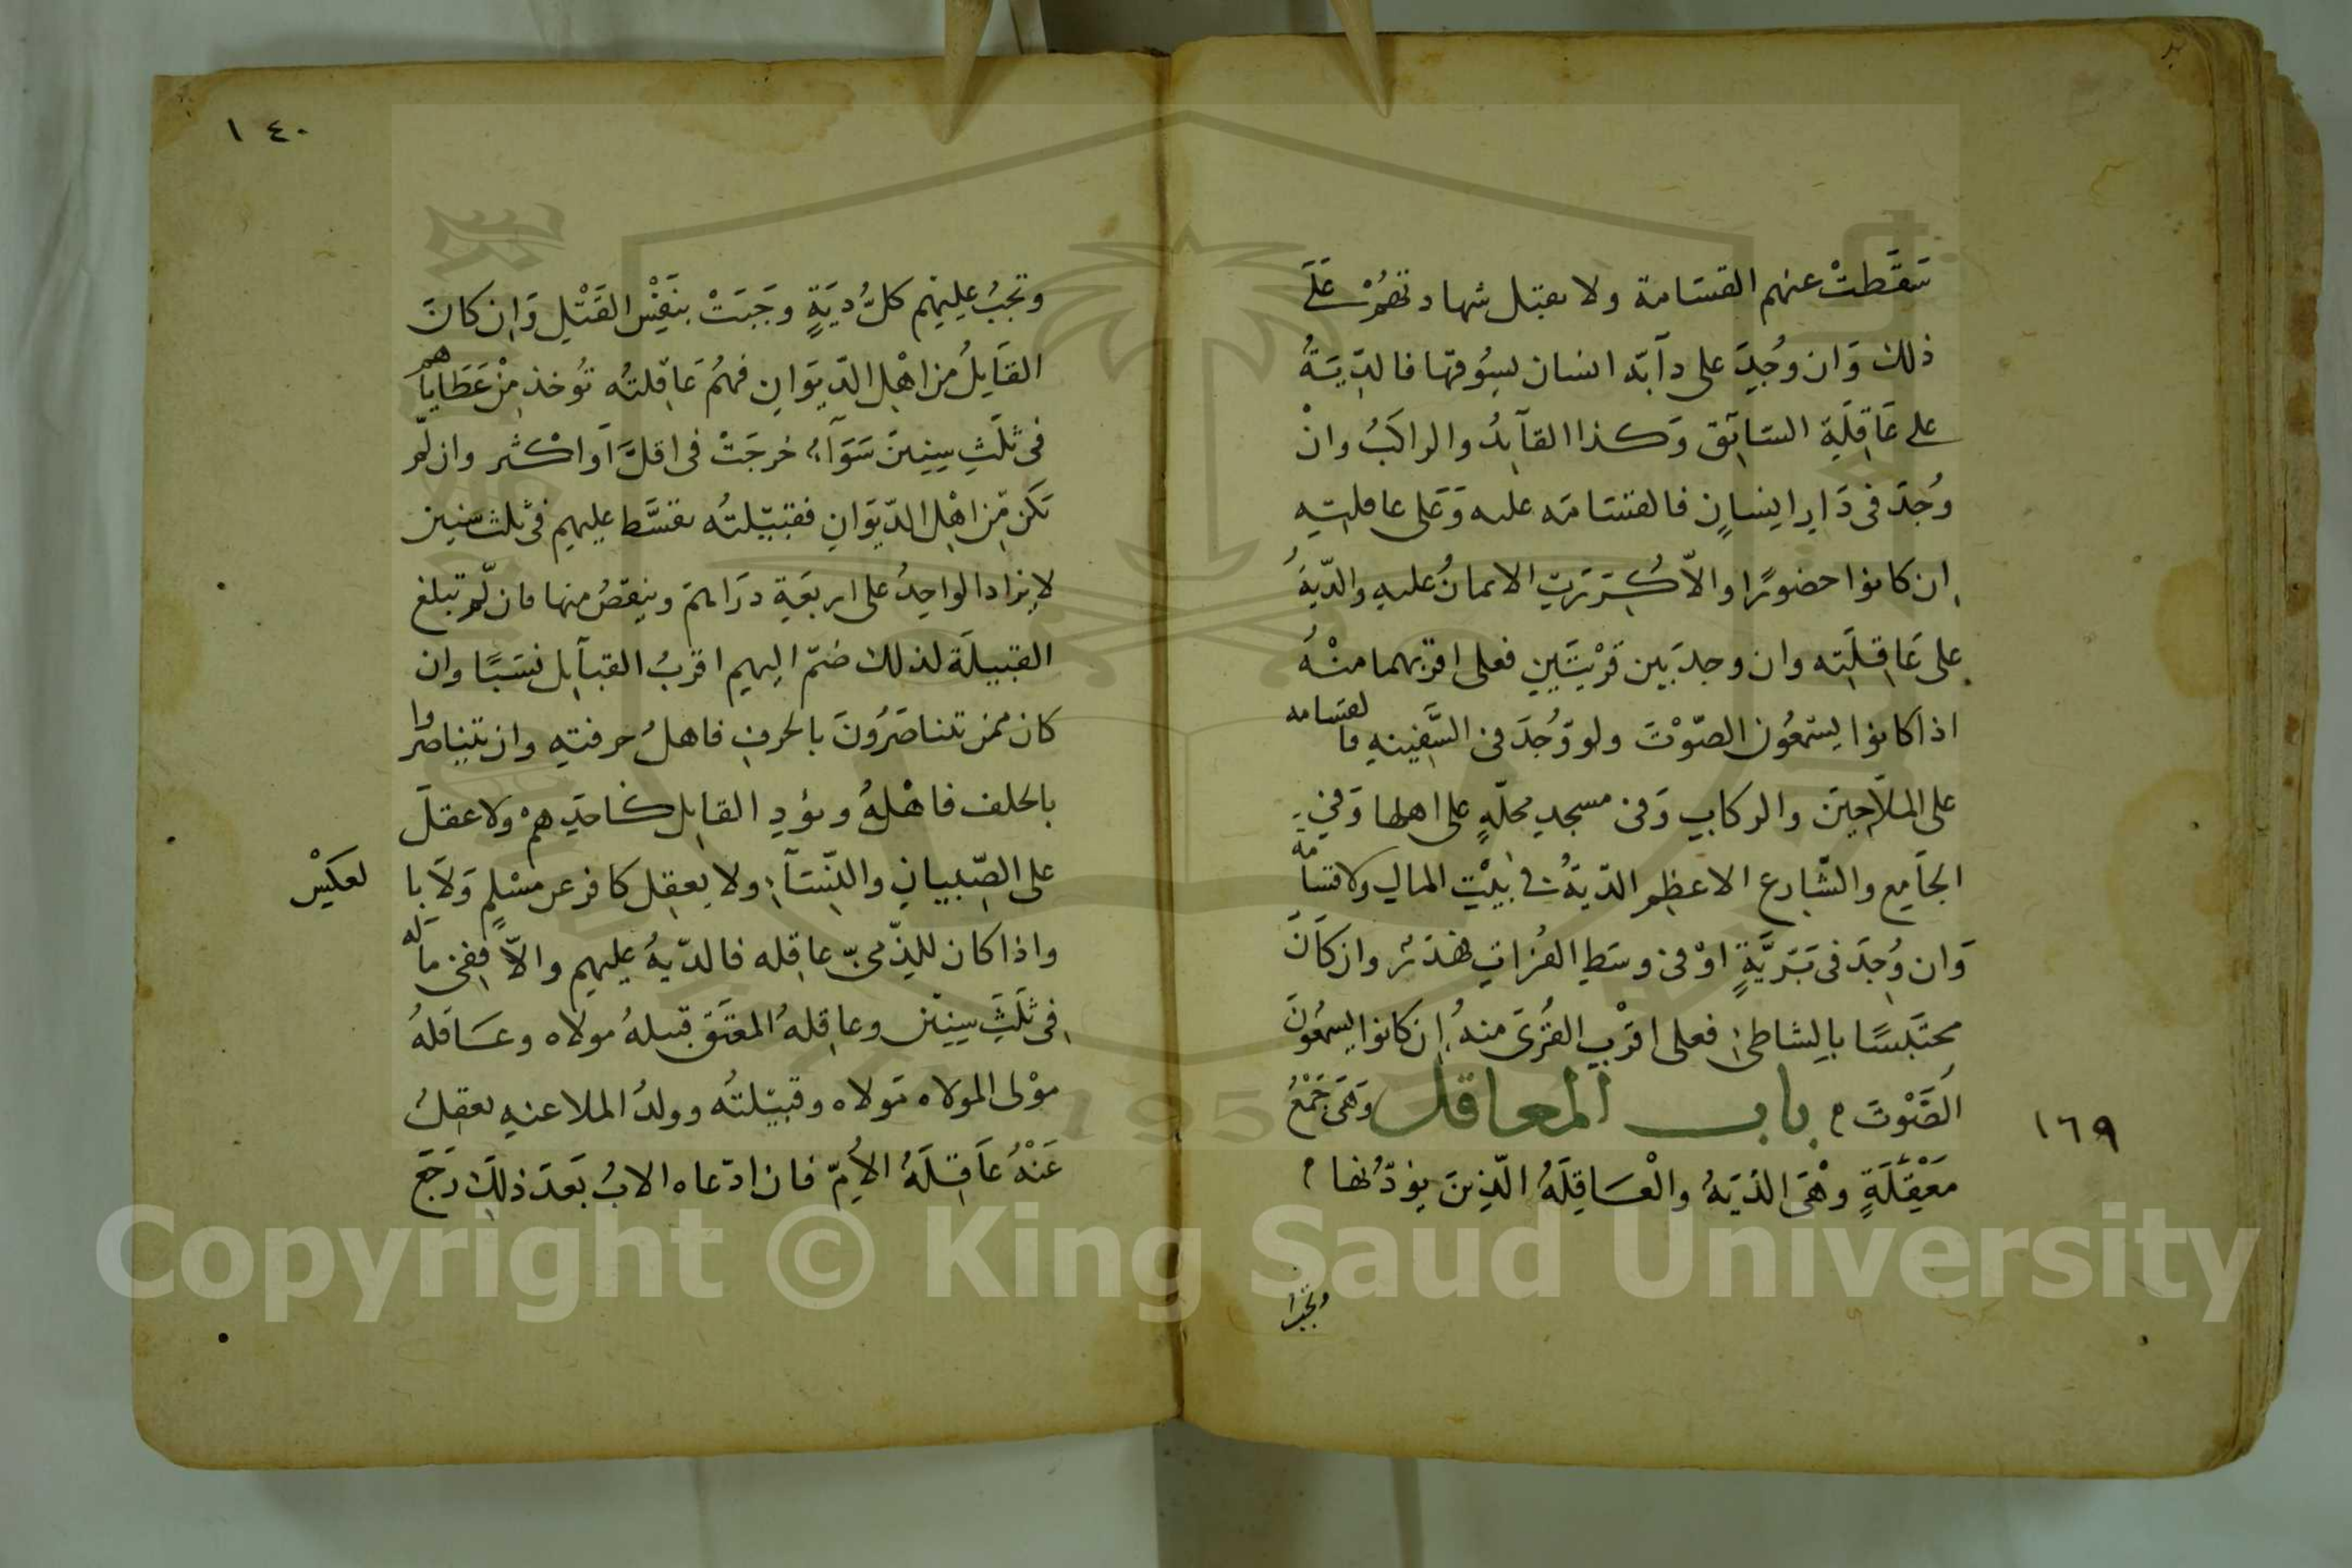 سَقَطتْ عنهم القسَامة ولا يقبل شهادتهُمْ عَلَى
ذلك وَان وُجِدَ على دآبّة انسان يسُوقهَا فالدِّيَةُ
على عَاقِلَةِ السَائِق وَكذا القآيدُ والراكبُ وانْ
وُجدَ في دَارِ اِنسانٍ فالقسَامَه عليه وَعَلى عاقلتِهِ
اِن كانوا حضورًا والاّ كُرِّرَتِ الايمانُ عليهِ والدّيةُ
على عَاقِلَتِه وان وجدَ بَين قرْيَتَينِ فعلى اقرَبهما منْهُ
اذا كانوا يسْمعُون الصّوْتَ ولو وُجدَ في السَّفِينهِ فا لقسامه
على الملاَّحِينَ والركابِ وَفي مسجدِ محلّهٍ على اهلها وَفي
الجَامِع والشَّارع الاعظم الديَةُ في بيْتِ المالِ ولا قسامة
وَان وُجِدَ في بَرّيَّةٍ اوْ في وسَطِ الفُراتِ فهَدَرٌ وان كَانَ
محتبَسًا بالشاطئِ فعلى اقرَبِ القُرَى منهُ اِن كانوا يسمعُونَ
الصَّوْتَ ه باب المعاقل وَهيَ جَمْعُ
مَعْقُلَةٍ وهْيَ الدّيَةُ والْعَاقِلَةُ الّذِينَ يؤدّونها ه
١٦٩
وتجب
١٤٠
وتجبُ عليهِم كلُّ ديَةٍ وجَبَتْ بنَفْسِ القَتْلِ وَاِن كانَ
القَاتِلُ من اهْلِ الدّيوَانِ فهُمْ عَاقِلتُه تُوخذ مِنْ عَطَايَاهم
في ثَلَثِ سِنِينَ سَوَآءٌ خرجَتْ في اقلَّ اَو اكْثر وان لّم
يَكن مّن اهْلِ الدّيوَانِ فقبيلتُه تقسَّط عليهم في ثلث سنين
لا يزاد الواحِدُ على اربعَةِ درَاهمَ وينقصُ منها فان لّم تبلغ
القبيلَة لذلك ضُمّ اليهم اقربُ القبآيل نسَبًا وان
كان ممن تتناصَرُونَ بالحرفِ فاهلُ حرفتهِ وان تتناصروا
بالحلف فاهْلهُ ويؤدِ القاتِل كاحَدِهمْ ولا عقلَ
على الصِّبيانِ والنّسَآءِ ولا يعقِل كافر عن مسْلمٍ وَلاَ با لعكسْ
واذا كان للذّميّ عاقِله فالدّيةُ عليهم والاّ ففي مالَه
في ثَلَثِ سِنِين وعاقِلهُ المعتَق قبيلهُ مولاه وعَاقلهُ
موْلى المولاه مَولاه وقبيلتُه وولدُ الملاعنهِ تعقِلُ
عَنْهُ عَاقِلَهُ الأمِّ فان ادّعاه الابُ بَعَدَ ذلِكَ رَجَعَ
Copyright © King Saud University
1957